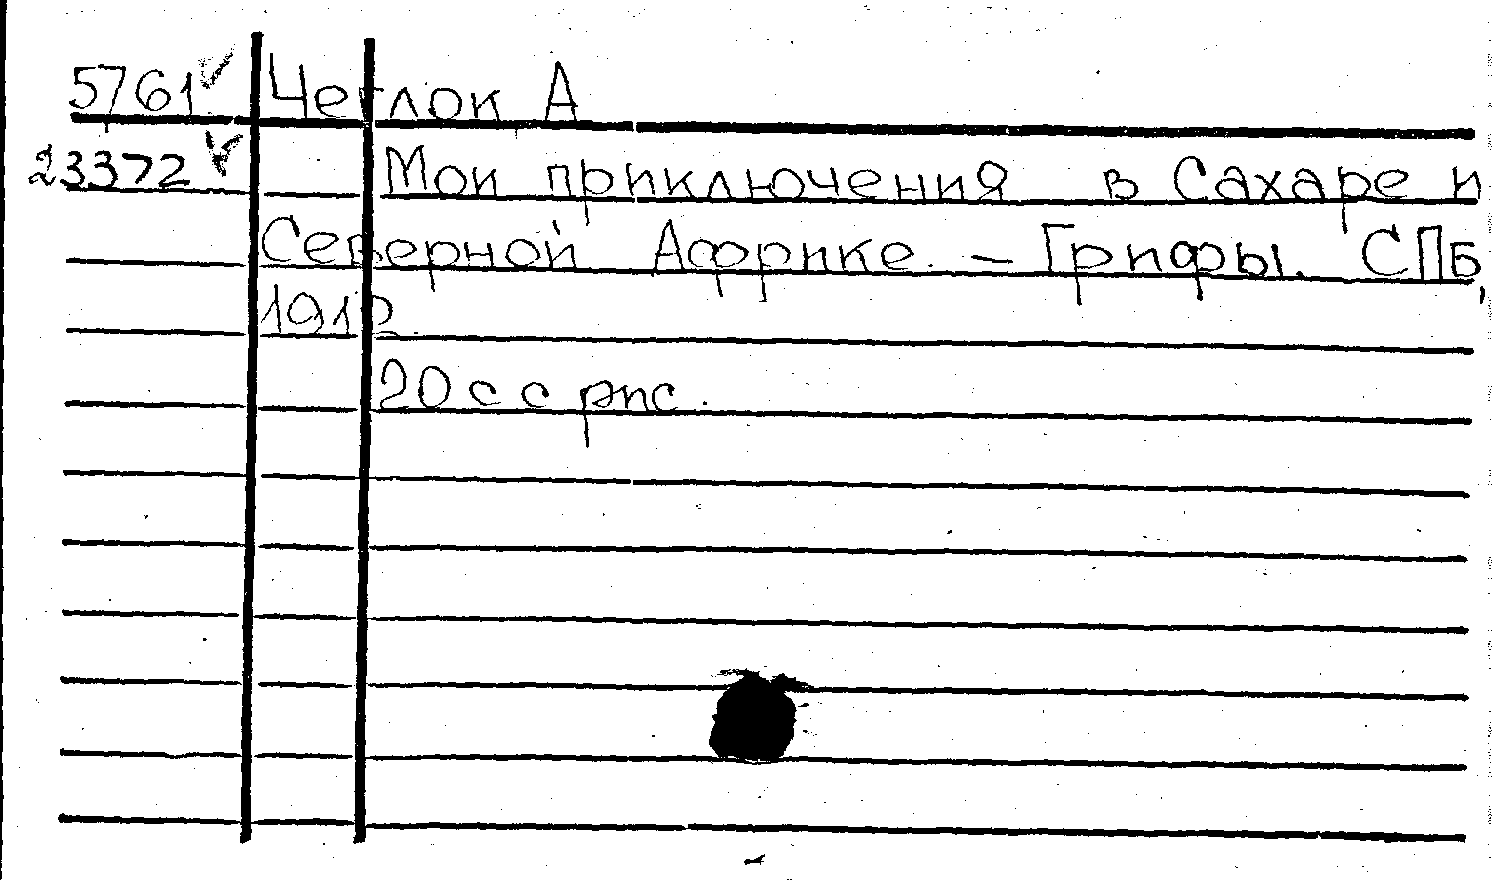 5761 Чеглок А
23372 Мои приключения в Сахаре и
Северной Африке. — Грифы. СПб,
1912.
20 с с рис.